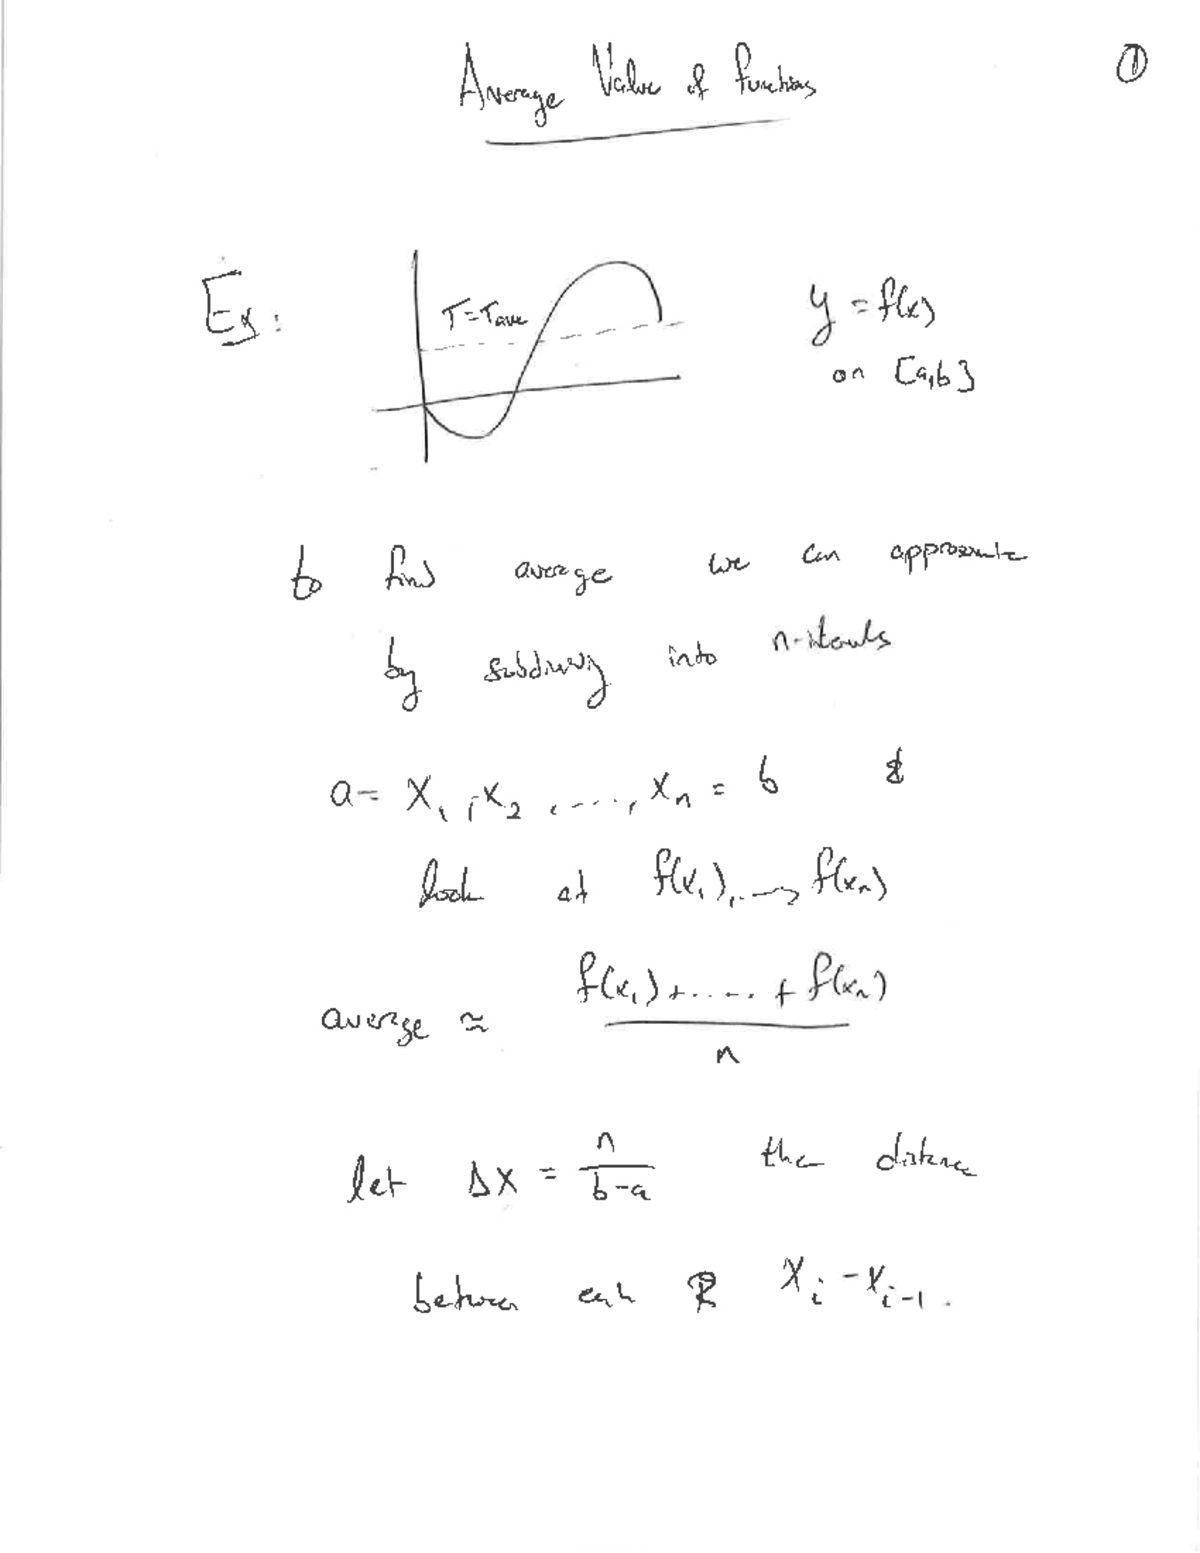 Average Value of functions
①
Ex:
T=Tave
y = f(x)
on [a,b]
to find average we can approximate
by subdividing into n-intervals
a= x₁, x₂, ...., xₙ = b &
look at f(x₁), ..., f(xₙ)
average ≈ f(x₁)+.....+f(xₙ) / n
let Δx = n / b-a the distance
between each xᵢ - xᵢ₋₁.